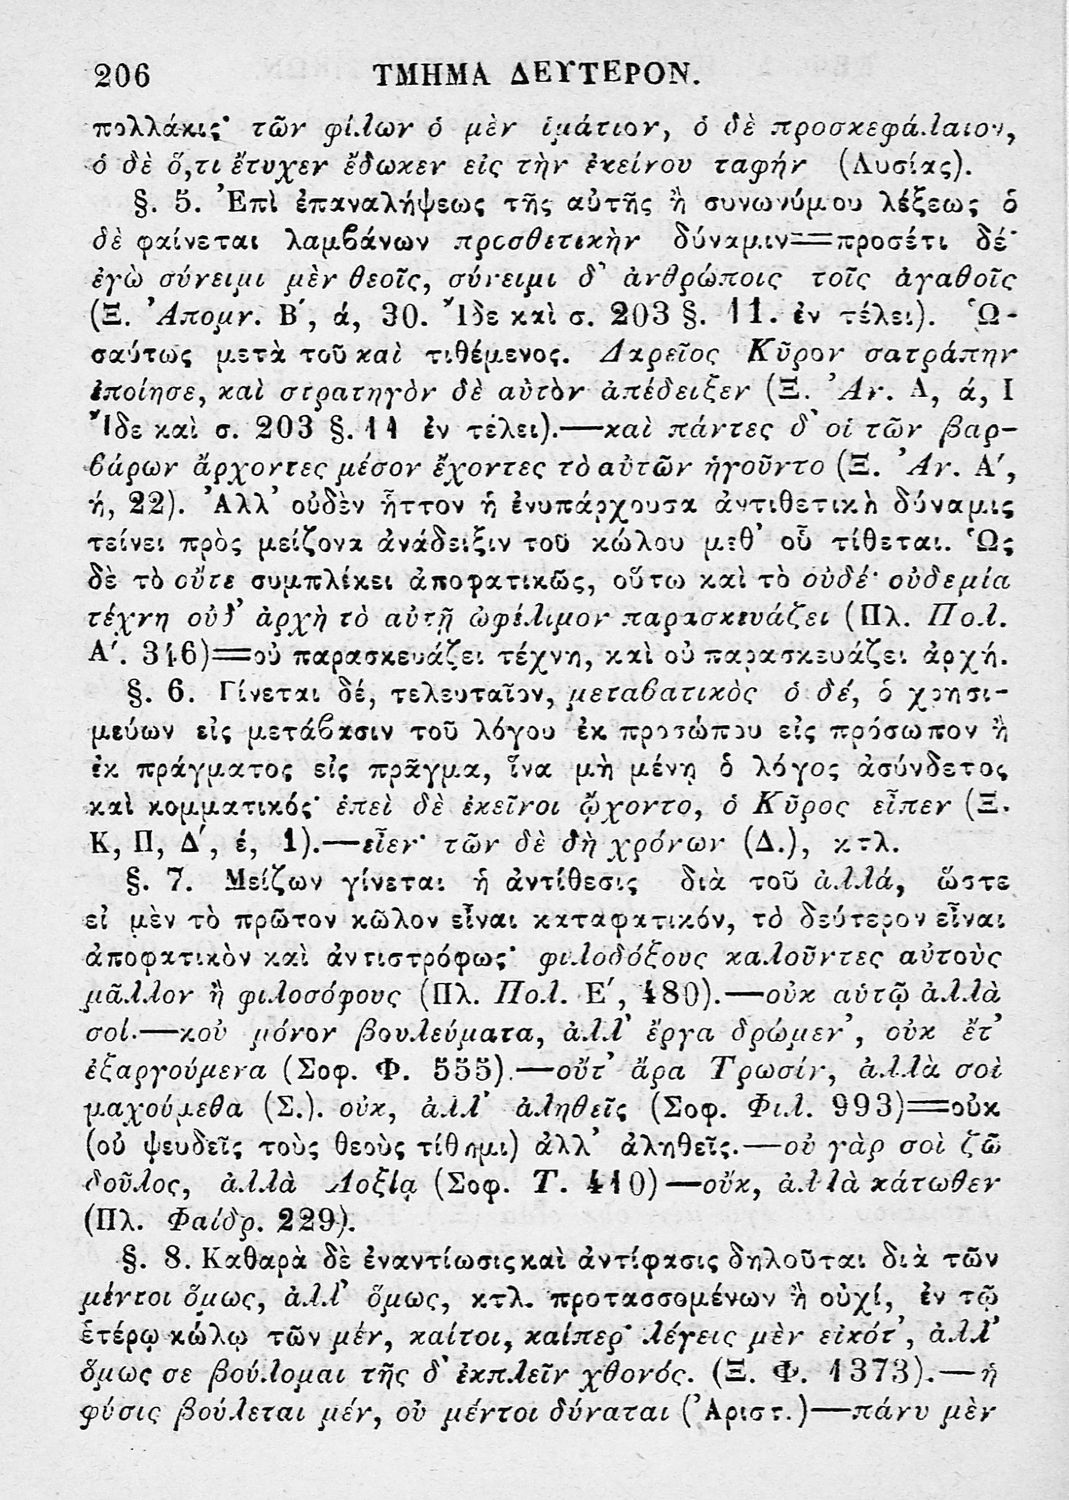 206 ΤΜΗΜΑ ΔΕΥΤΕΡΟΝ.
πολλάκις· τῶν φίλων ὁ μὲν ἱμάτιον, ὁ δὲ προσκεφάλαιον,
ὁ δὲ ὅ,τι ἔτυχεν ἔδωκεν εἰς τὴν ἐκείνου ταφήν (Λυσίας).
§. 5. Ἐπὶ ἐπαναλήψεως τῆς αὐτῆς ἢ συνωνύμου λέξεως ὁ
δὲ φαίνεται λαμβάνων προσθετικὴν δύναμιν=προσέτι δέ·
ἐγὼ σύνειμι μὲν θεοῖς, σύνειμι δ' ἀνθρώποις τοῖς ἀγαθοῖς
(Ξ. Ἀπομν. Β', ά, 30. Ἴδε καὶ σ. 203 §. 11. ἐν τέλει). Ὡ-
σαύτως μετὰ τοῦ καὶ τιθέμενος. Δαρεῖος Κῦρον σατράπην
ἐποίησε, καὶ στρατηγὸν δὲ αὐτὸν ἀπέδειξεν (Ξ. Ἀν. Α, ά, Ι
Ἴδε καὶ σ. 203 §. 11 ἐν τέλει).—καὶ πάντες δ' οἱ τῶν βαρ-
βάρων ἄρχοντες μέσον ἔχοντες τὸ αὑτῶν ἡγοῦντο (Ξ. Ἀν. Α',
ή, 22). Ἀλλ' οὐδὲν ἧττον ἡ ἐνυπάρχουσα ἀντιθετικὴ δύναμις
τείνει πρὸς μείζονα ἀνάδειξιν τοῦ κώλου μεθ' οὗ τίθεται. Ὡς
δὲ τὸ οὔτε συμπλέκει ἀποφατικῶς, οὕτω καὶ τὸ οὐδέ· οὐδεμία
τέχνη οὐδ' ἀρχὴ τὸ αὑτῇ ὠφέλιμον παρασκευάζει (Πλ. Πολ.
Α'. 346)=οὐ παρασκευάζει τέχνη, καὶ οὐ παρασκευάζει ἀρχή.
§. 6. Γίνεται δέ, τελευταῖον, μεταβατικὸς ὁ δέ, ὁ χρησι-
μεύων εἰς μετάβασιν τοῦ λόγου ἐκ προσώπου εἰς πρόσωπον ἢ
ἐκ πράγματος εἰς πρᾶγμα, ἵνα μὴ μένῃ ὁ λόγος ἀσύνδετος
καὶ κομματικός· ἐπεὶ δὲ ἐκεῖνοι ᾤχοντο, ὁ Κῦρος εἶπεν (Ξ.
Κ, Π, Δ', έ, 1).—εἶεν· τῶν δὲ δὴ χρόνων (Δ.), κτλ.
§. 7. Μείζων γίνεται ἡ ἀντίθεσις διὰ τοῦ ἀλλά, ὥστε
εἰ μὲν τὸ πρῶτον κῶλον εἶναι καταφατικόν, τὸ δεύτερον εἶναι
ἀποφατικὸν καὶ ἀντιστρόφως· φιλοδόξους καλοῦντες αὐτοὺς
μᾶλλον ἢ φιλοσόφους (Πλ. Πολ. Ε', 480).—οὐκ αὑτῷ ἀλλὰ
σοί.—κοὐ μόνον βουλεύματα, ἀλλ' ἔργα δρώμεν', οὐκ ἔτ'
ἐξαργούμενα (Σοφ. Φ. 555).—οὔτ' ἄρα Τρωσίν, ἀλλὰ σοὶ
μαχούμεθα (Σ.). οὐκ, ἀλλ' ἀληθεῖς (Σοφ. Φιλ. 993)=οὐκ
(οὐ ψευδεῖς τοὺς θεοὺς τίθημι) ἀλλ' ἀληθεῖς.—οὐ γὰρ σοὶ ζῶ
δοῦλος, ἀλλὰ Λοξίᾳ (Σοφ. Τ. 410)—οὔκ, ἀλλὰ κάτωθεν
(Πλ. Φαίδρ. 229).
§. 8. Καθαρὰ δὲ ἐναντίωσις καὶ ἀντίφασις δηλοῦται διὰ τῶν
μέντοι ὅμως, ἀλλ' ὅμως, κτλ. προτασσομένων ἢ οὐχί, ἐν τῷ
ἑτέρῳ κώλῳ τῶν μέν, καίτοι, καίπερ· λέγεις μὲν εἰκότ', ἀλλ'
ὅμως σε βούλομαι τῆς δ' ἐκπλεῖν χθονός. (Ξ. Φ. 1373).—ἡ
φύσις βούλεται μέν, οὐ μέντοι δύναται (Ἀριστ.)—πάνυ μὲν